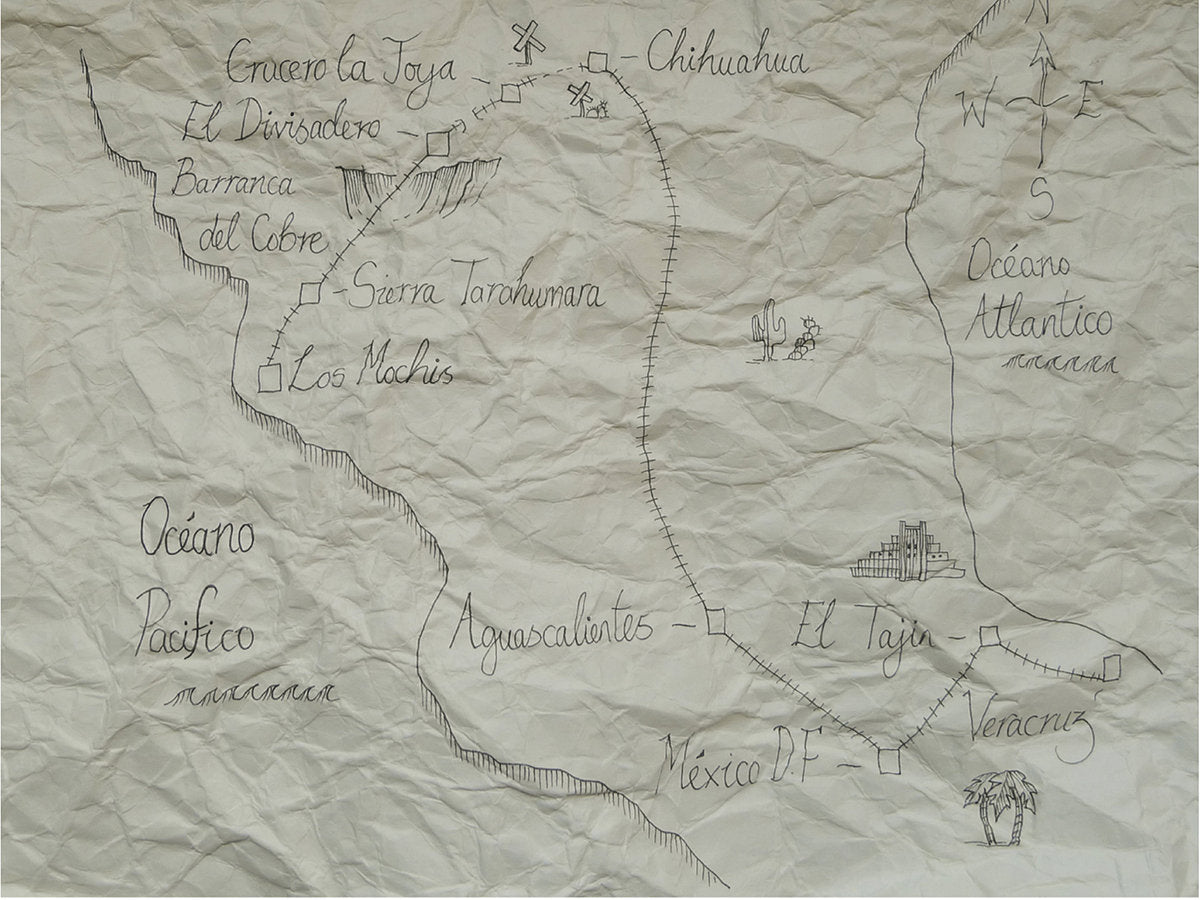 N
Crucero la Joya
Chihuahua
W
E
El Divisadero
Barranca
del Cobre
S
Sierra Tarahumara
Océano
Atlantico
Los Mochis
Océano
Pacifico
Aguascalientes
El Tajin
Veracruz
México D.F